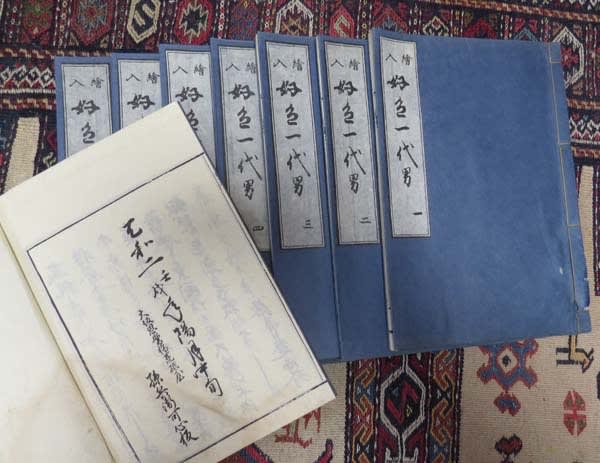 繪入 好色一代男 一
繪入 好色一代男 二
繪入 好色一代男 三
繪入 好色一代男 四
繪入 好色
繪入 好
繪入 好
天和二壬戌年陽月中旬
大坂思案橋荒砥屋
孫兵衛可心板